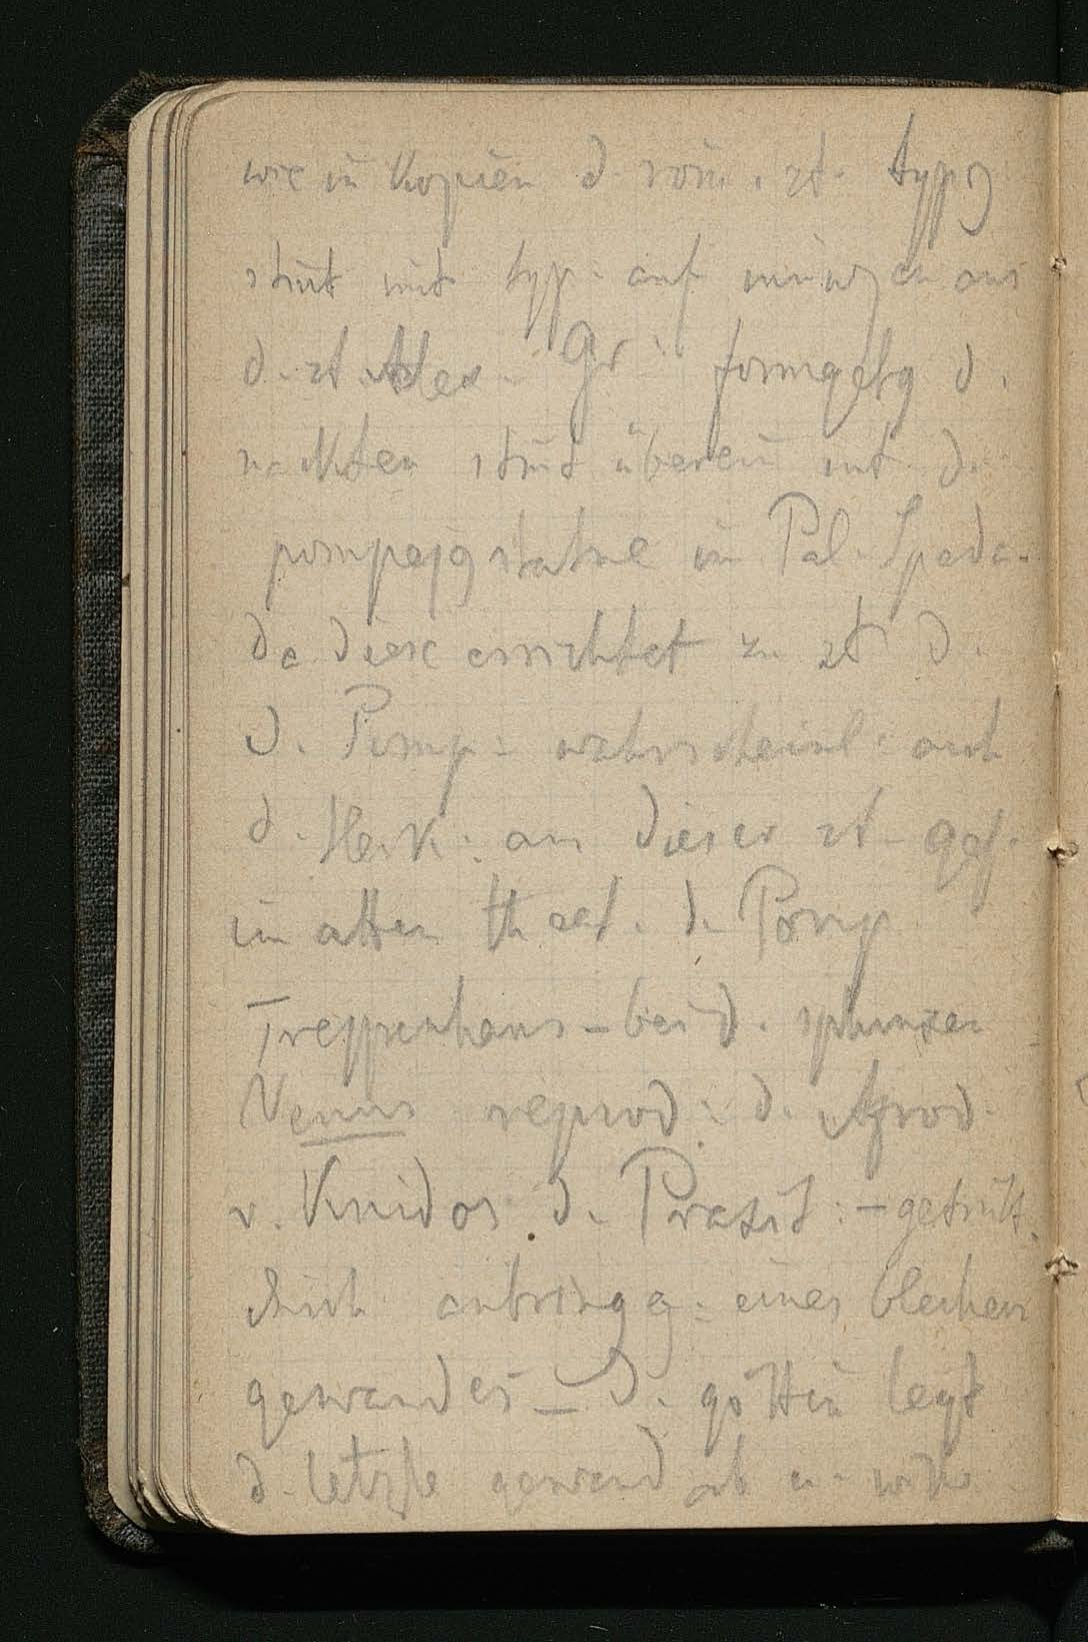 wie in Kopien d. röm. zt. typ9
stimt mit typ. auf münzen aus
d. zt. Alex. Gr. formgebg d.
nackten stimt überein mit d.
pompej9 statue im Pal. Spada.
da diese errichtet zu zt d.
d. Pomp: wahrscheinl: auch
d. Herk: aus dieser zt. gef.
im alten theat. d. Pomp
Treppenhaus – bei d. sphinxen
Venus reprod: d. Afrod.
v. Knidos d. Praxit: –
durch anbringg: eines
gewandes – D. göttin legt
d. letzte gewand ab u.